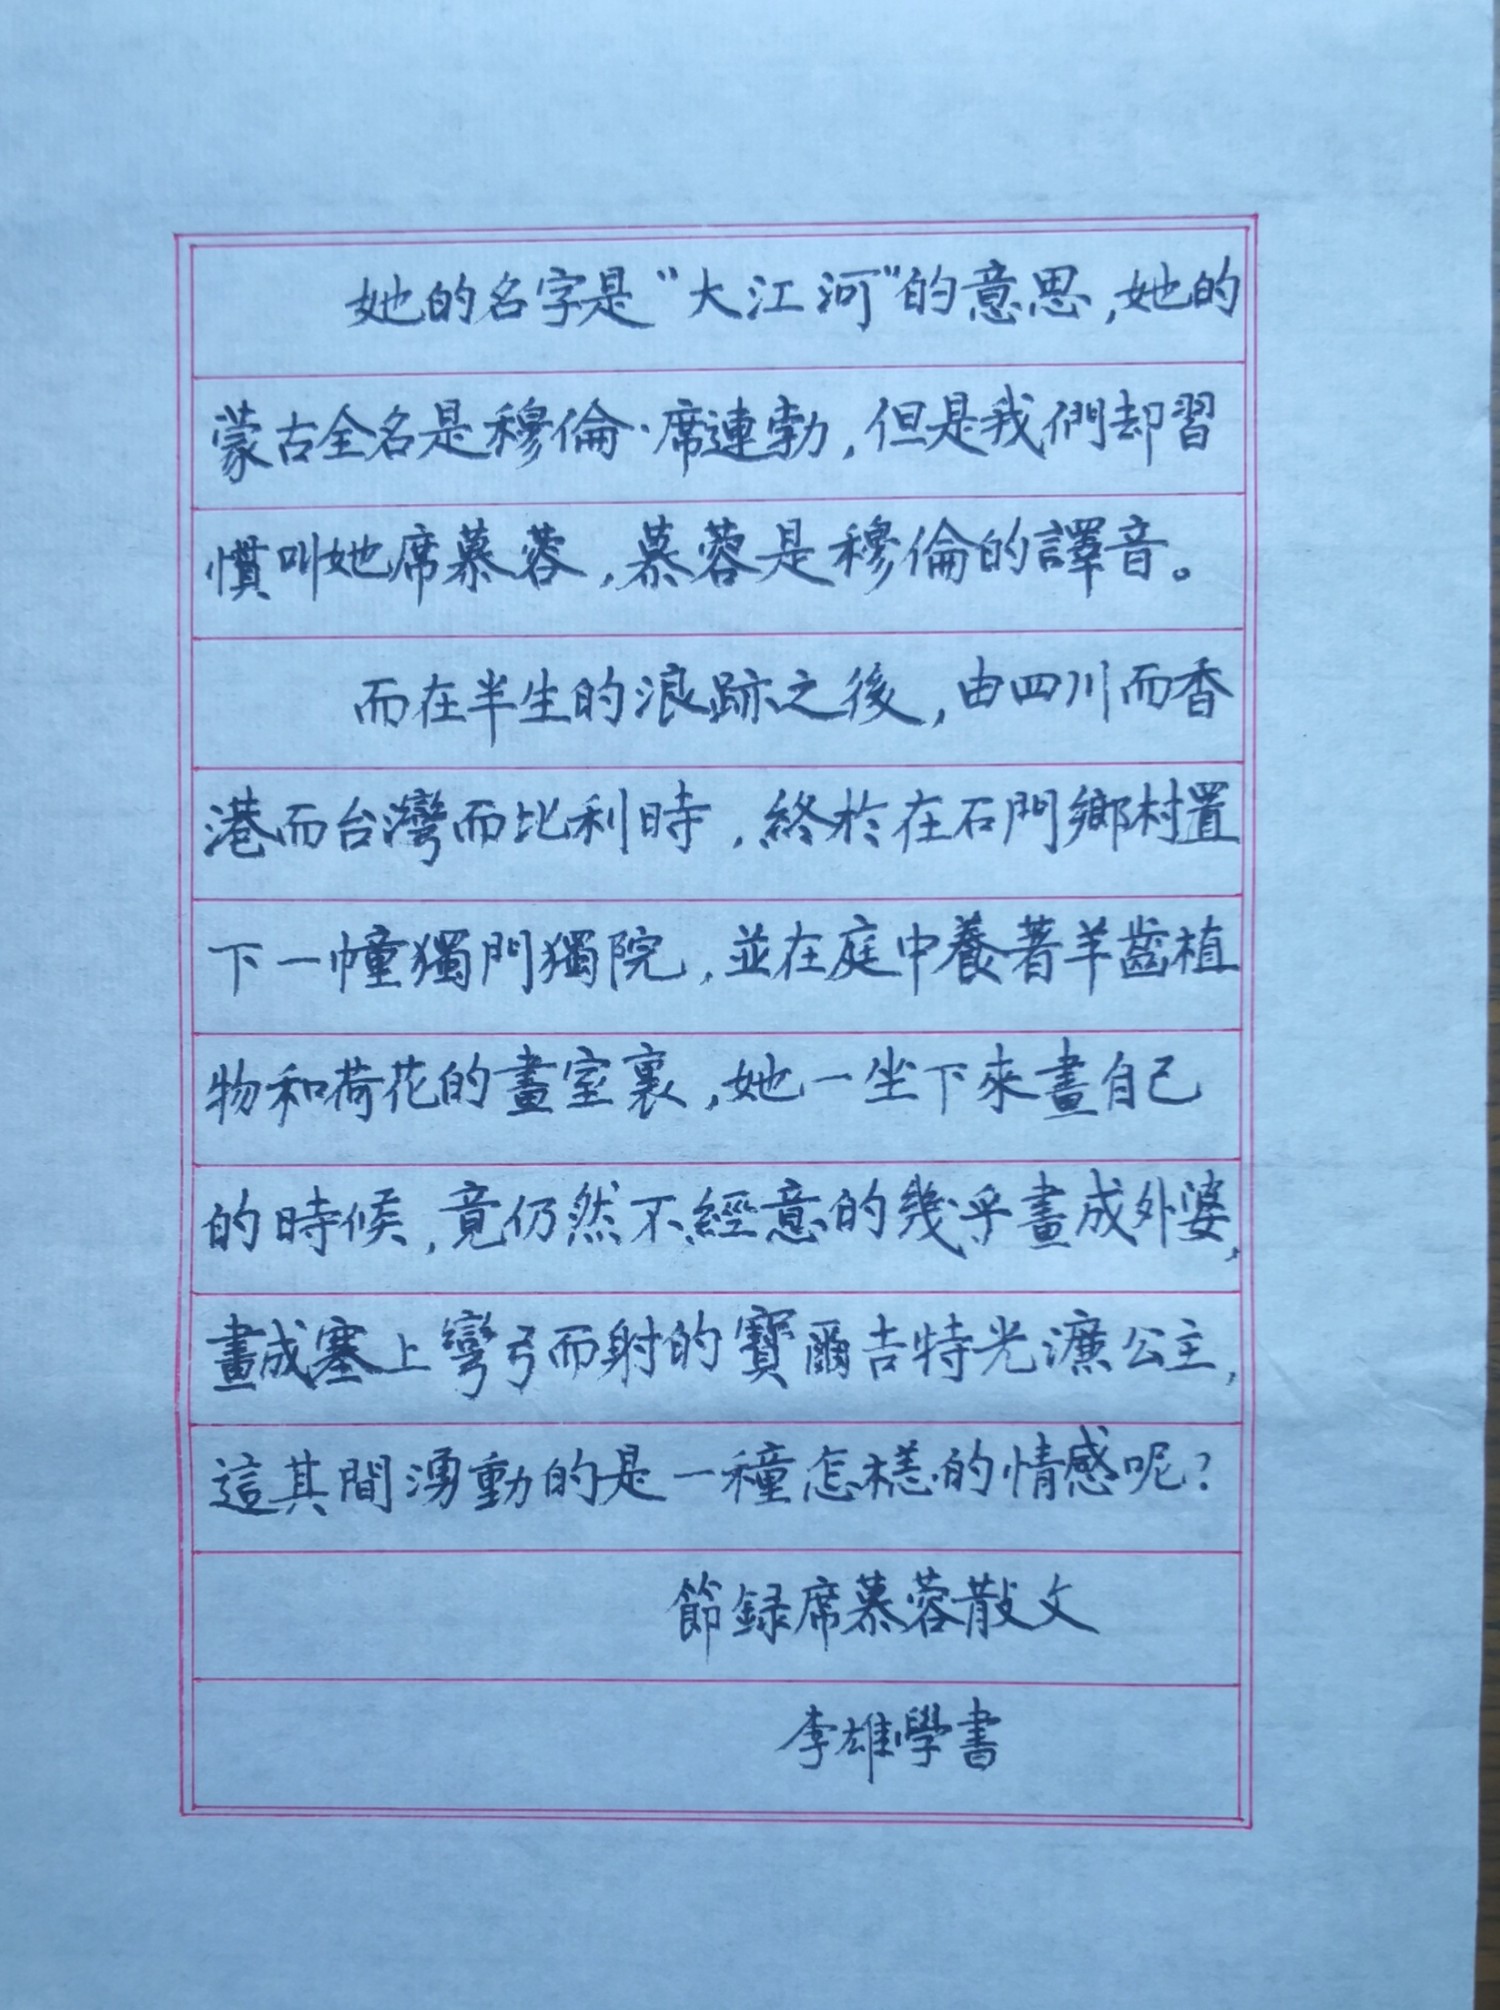 她的名字是“大江河”的意思，她的
蒙古全名是穆倫·席連勃，但是我們却習
慣叫她席慕蓉，慕蓉是穆倫的譯音。
而在半生的浪跡之後，由四川而香
港而台灣而比利時，終於在石門鄉村置
下一幢獨門獨院，並在庭中養著羊齒植
物和荷花的畫室裏，她一坐下來畫自己
的時候，竟仍然不經意的幾乎畫成外婆，
畫成塞上彎弓而射的寶爾吉特光濂公主，
這其間湧動的是一種怎樣的情感呢？
節録席慕蓉散文
李雄學書